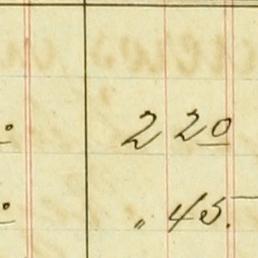 2 20
" 45.